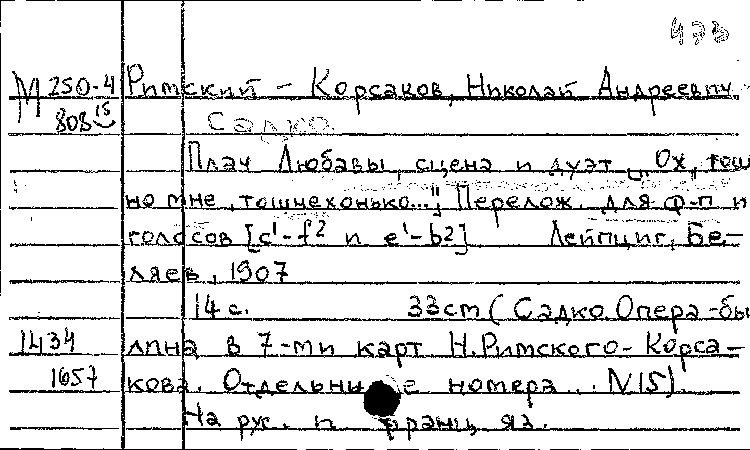 473
М 250-4 Римский - Корсаков, Николай Андреевич.
808 15 Садко
Плач Любавы, сцена и дуэт „Ох, тош
но мне, тошнехонько..."; Перелож. для ф-п и
голосов [c¹-f² и e¹-b²] Лейпциг, Бе-
ляев, 1907
14 с. 33cm (Садко. Опера-бы
1434 лина в 7-ми карт Н. Римского-Корса-
1657 кова. Отдельные номера .. N15).
На рус. и франц яз.